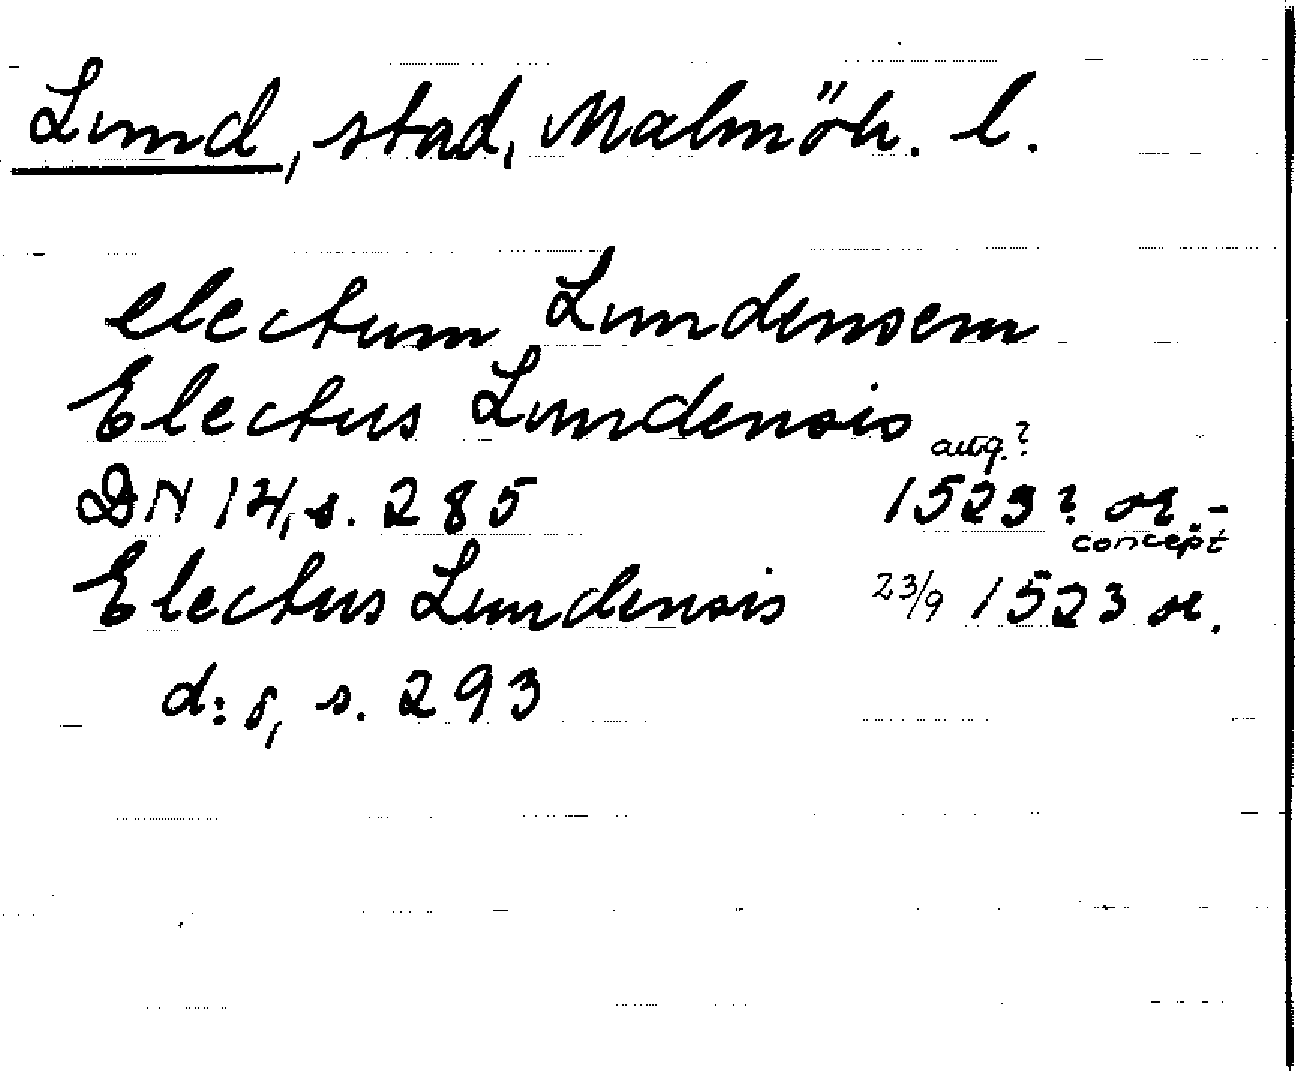 Lund, stad, Malmöh. l.
electum Lundensem
Electus Lundensis
aug.?
DN 14, s. 285 1523? or.-
concept
Electus Lundensis 23/9 1523 or.
d:o, s. 293